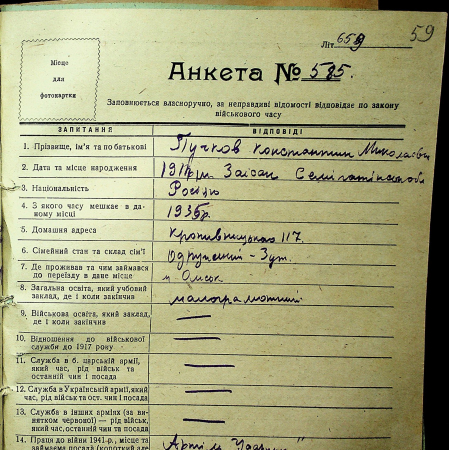 59
Літ. 659
Місце
для
фотокартки
Анкета № 585.
Заповнюється власноручно, за неправдиві відомості відповідає по закону
військового часу
ЗАПИТАННЯ ВІДПОВІДІ
1. Прізвище, ім'я та по батькові Пучков Константин Миколаєвич
2. Дата та місце народження 191 р. м. Заісан
3. Національність Росіян
4. З якого часу мешкає в да-
ному місці 1935р.
5. Домашня адреса Кропивницького 117.
6. Сімейний стан та склад сім'ї Одружений – 3 
7. Де проживав та чим займався
до переїзду в дане місце м. Омськ
8. Загальна освіта, який учбовий
заклад, де і коли закінчив малограмотний
9. Військова освіта, який заклад,
де і коли закінчив —
10. Відношення до військової
служби до 1917 року —
11. Служба в б. царській армії,
який час, рід військ та
останній чин і посада —
12. Служба в Українській армії, який
час, рід військ та ост. чин і посада —
13. Служба в інших арміях (за ви-
нятком червоної) — рід військ,
який час, останній чин та посада —
14. Праця до війни 1941-р., місце та
займаєма посада (короткий